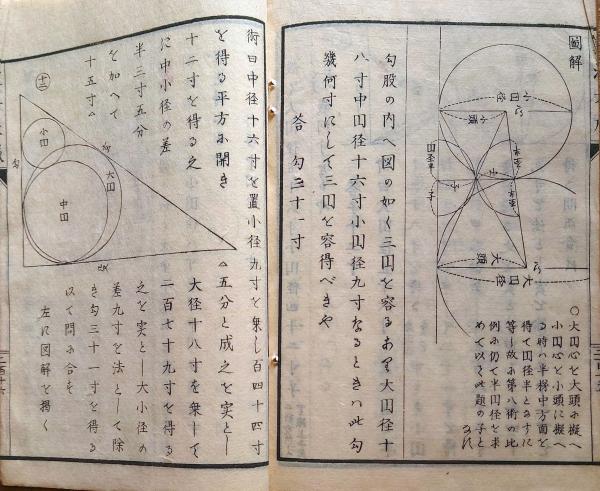 圖解
小円径
小頭
子
大頭
大円径
○大円心を大頭に擬へ
小円心を小頭に擬へ
る時ハ半梯中方面を
得て円径半となすに
等し故に第八術の比
例に仍て半円径を求
めて以て此題の子と
なれ
勾股の内へ図の如く三円を容るあり大円径十
八寸中円径十六寸小円径九寸なるときハ此勾
幾何寸にして三円を容得べきや
答 勾三十一寸
術曰中径十六寸を置小径九寸を乗し百四十四寸
を得る平方に開き
十二寸を得る之
に中小径の差
半三寸五分
を加へて
十五寸〃
〃五分と成之を実とし
大径十八寸を乗して
二百七十九寸を得る
之を実とし大小径の
差九寸を法として除
き勾三十一寸を得る
以て問に合す
左に図解を掲く
十二
小円
大円
中円
勾
股
弦